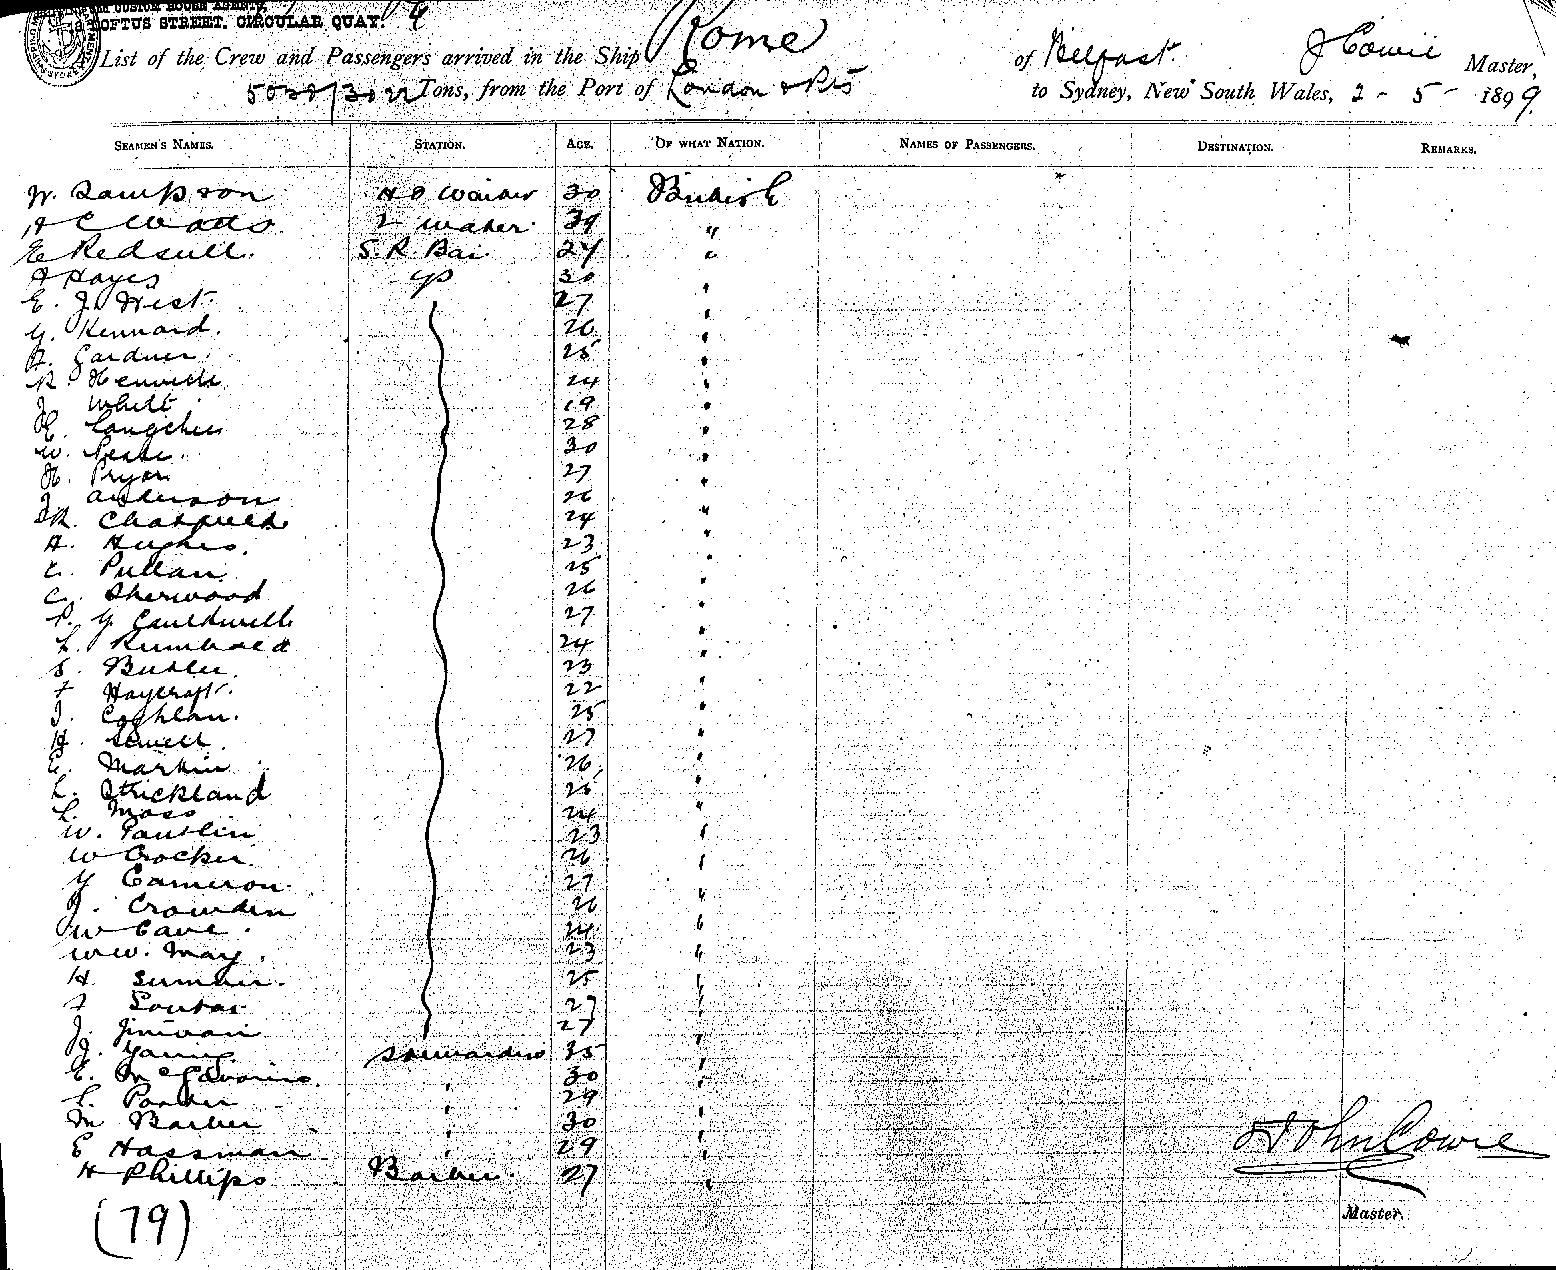 CUSTOM HOUSE AGENTS,
LOFTUS STREET, CIRCULAR QUAY. 4
List of the Crew and Passengers arrived in the Ship Rome of Belfast. J Cowie Master,
Tons, from the Port of London & Pts to Sydney, New South Wales, 2 - 5 - 1899.
SEAMEN'S NAMES. STATION. AGE. OF WHAT NATION. NAMES OF PASSENGERS. DESTINATION. REMARKS.
W. Sampson Waiter 30 British
A C Watts 2 Waiter 39 "
E Redsull. S. R. Bar 24 "
A Hayes 30 "
E. J. West. 27 "
G. Kennard. 26 "
A. Gardner 25 "
R. 24 "
J. White 19 "
E. 28 "
W. 30 "
H. Pryor 27 "
J. Anderson 26 "
R. Chatfield 24 "
A. Hughes. 23 "
E. Pullan 25 "
C. Sherwood 26 "
P. G Cauldwell 27 "
L. Rumbold 24 "
S. Butler. 23 "
F Haycraft. 22 "
J. Coghlan. 25 "
H. Sewell. 27 "
E. Martin 26 "
L. Strickland 25 "
L. Moss 24 "
W. 23 "
W Crocker. 26 "
G Cameron. 27 "
J. Crowden 26 "
W Cave. 24 "
W.W. May. 23 "
H. Sumner. 25 "
F Soutar 27 "
J. 27 "
J. Young. Stewardess 35 "
E. 30 "
L. 29 "
M Barber " 30 "
E Hassman " 29 "
H Phillips Barber. 27 "
John Cowie
(79)
Master.